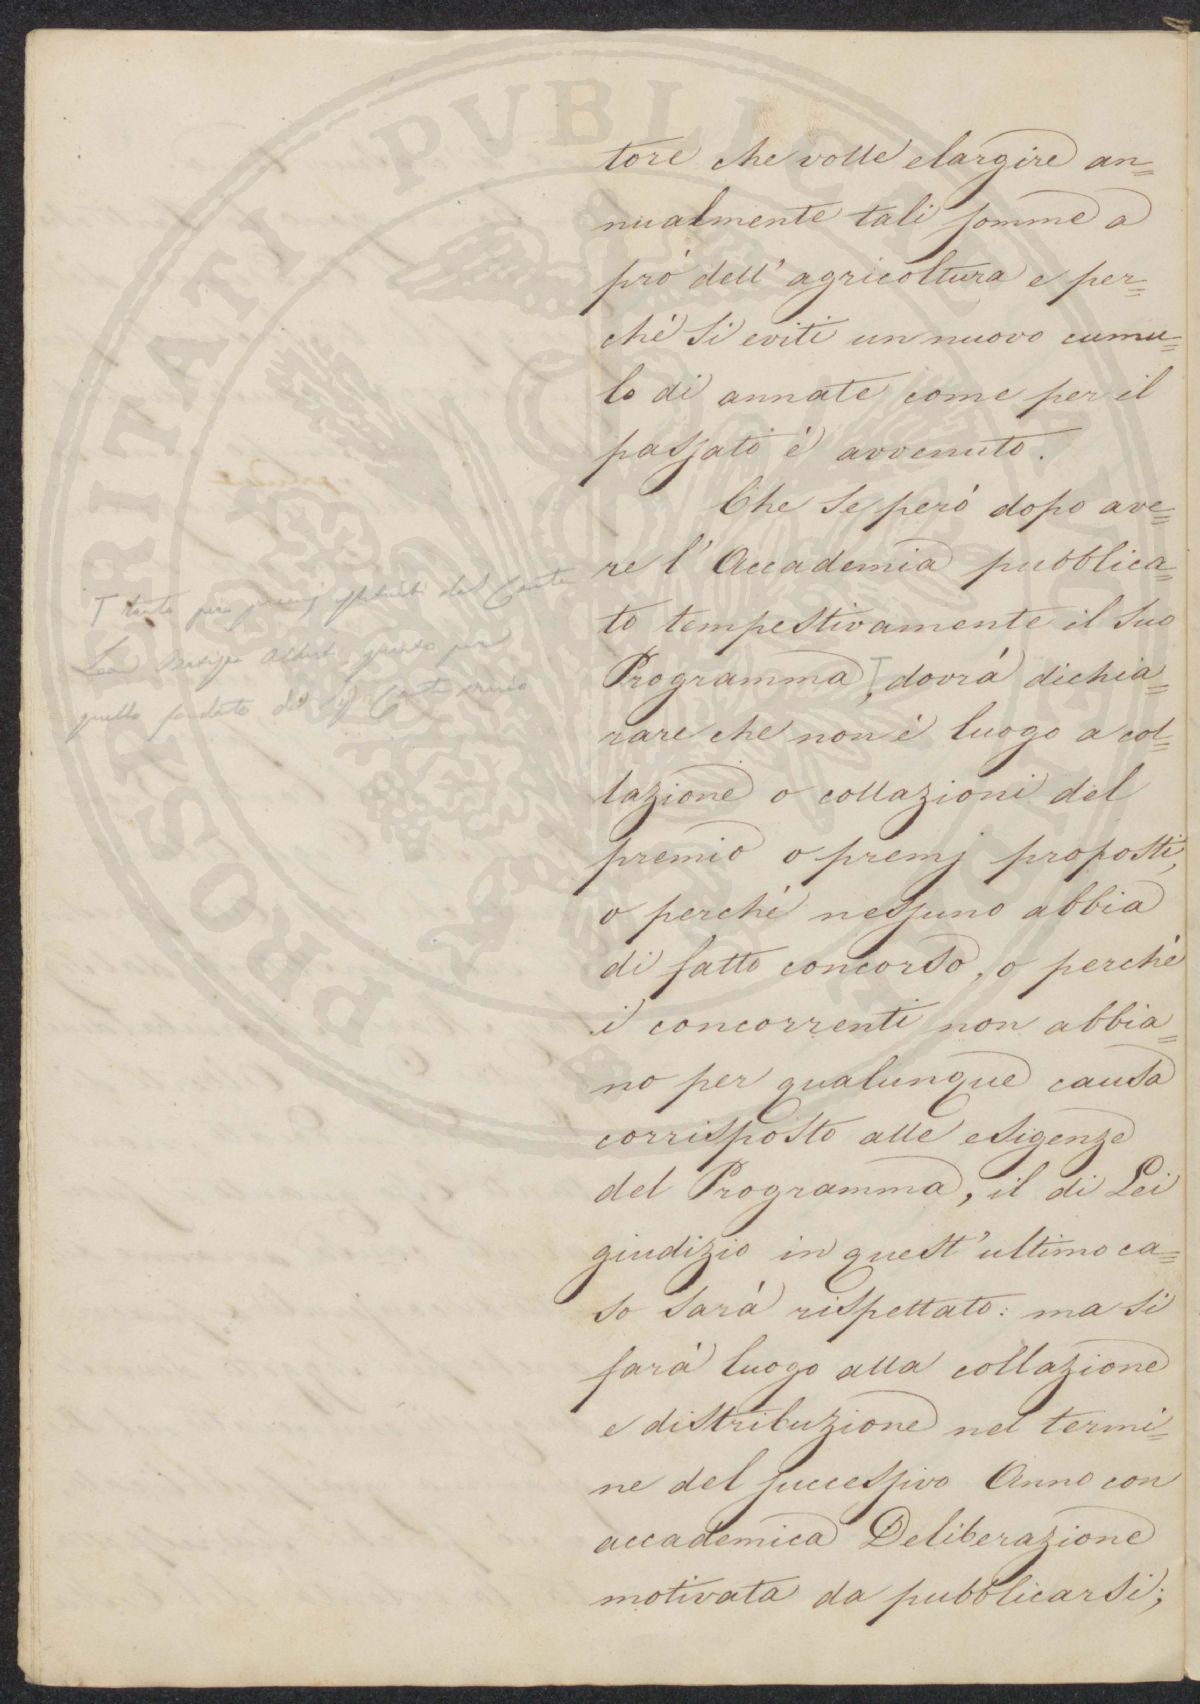 PROSPERITATI PUBLICAE
tore che volle elargire an=
nualmente tali somme a
pró dell' agricoltura e per=
ché si eviti un nuovo cumu=
lo di annate come per il
passato é avvenuto.
Che se peró dopo ave=
re l' Accademia pubblica=
to tempestivamente il suo
Programma, T dovrá dichia=
rare che non é luogo a col=
lazione o collazioni del
premio o premj proposti,
o perché nessuno abbia
di fatto concorso, o perché
i concorrenti non abbia=
no per qualunque causa
corrisposto alle esigenze
del Programma, il di Lei
giudizio in quest' ultimo ca=
so sará rispettato: ma si
fará luogo alla collazione
e distribuzione nel termi=
ne del successivo Anno con
accademica Deliberazione
motivata da pubblicarsi;
T tanto pei premj istituiti dal Conte
Leon Alberti, quanto per
quello fondato dal Conte